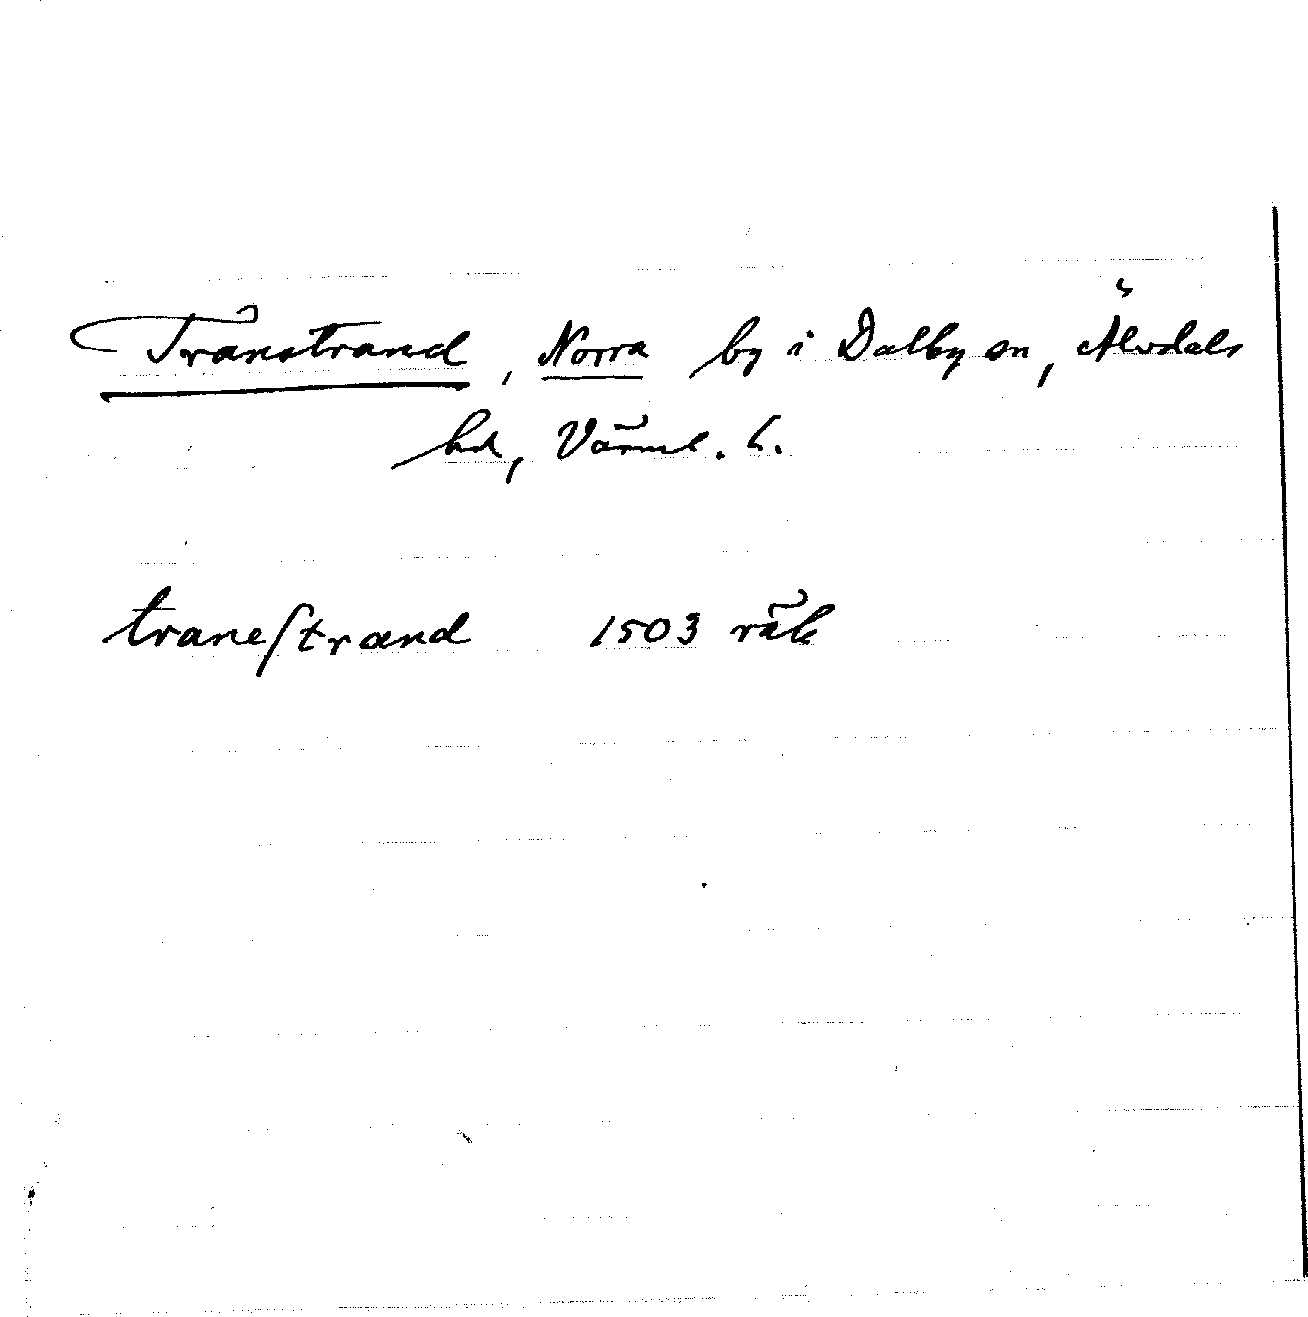 Tränstrand, Norra by i Dalby sn, Älvdals
hd, Värml. l.
traneſtrand 1503 räk